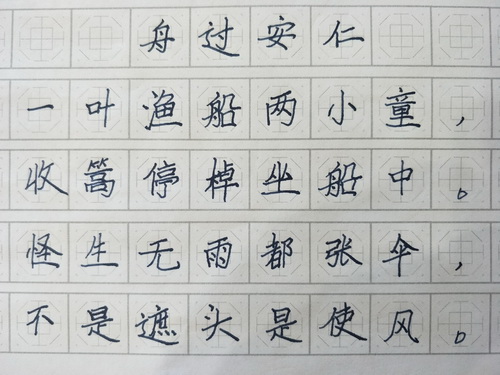 舟过安仁
一叶渔船两小童，
收篙停棹坐船中。
怪生无雨都张伞，
不是遮头是使风。